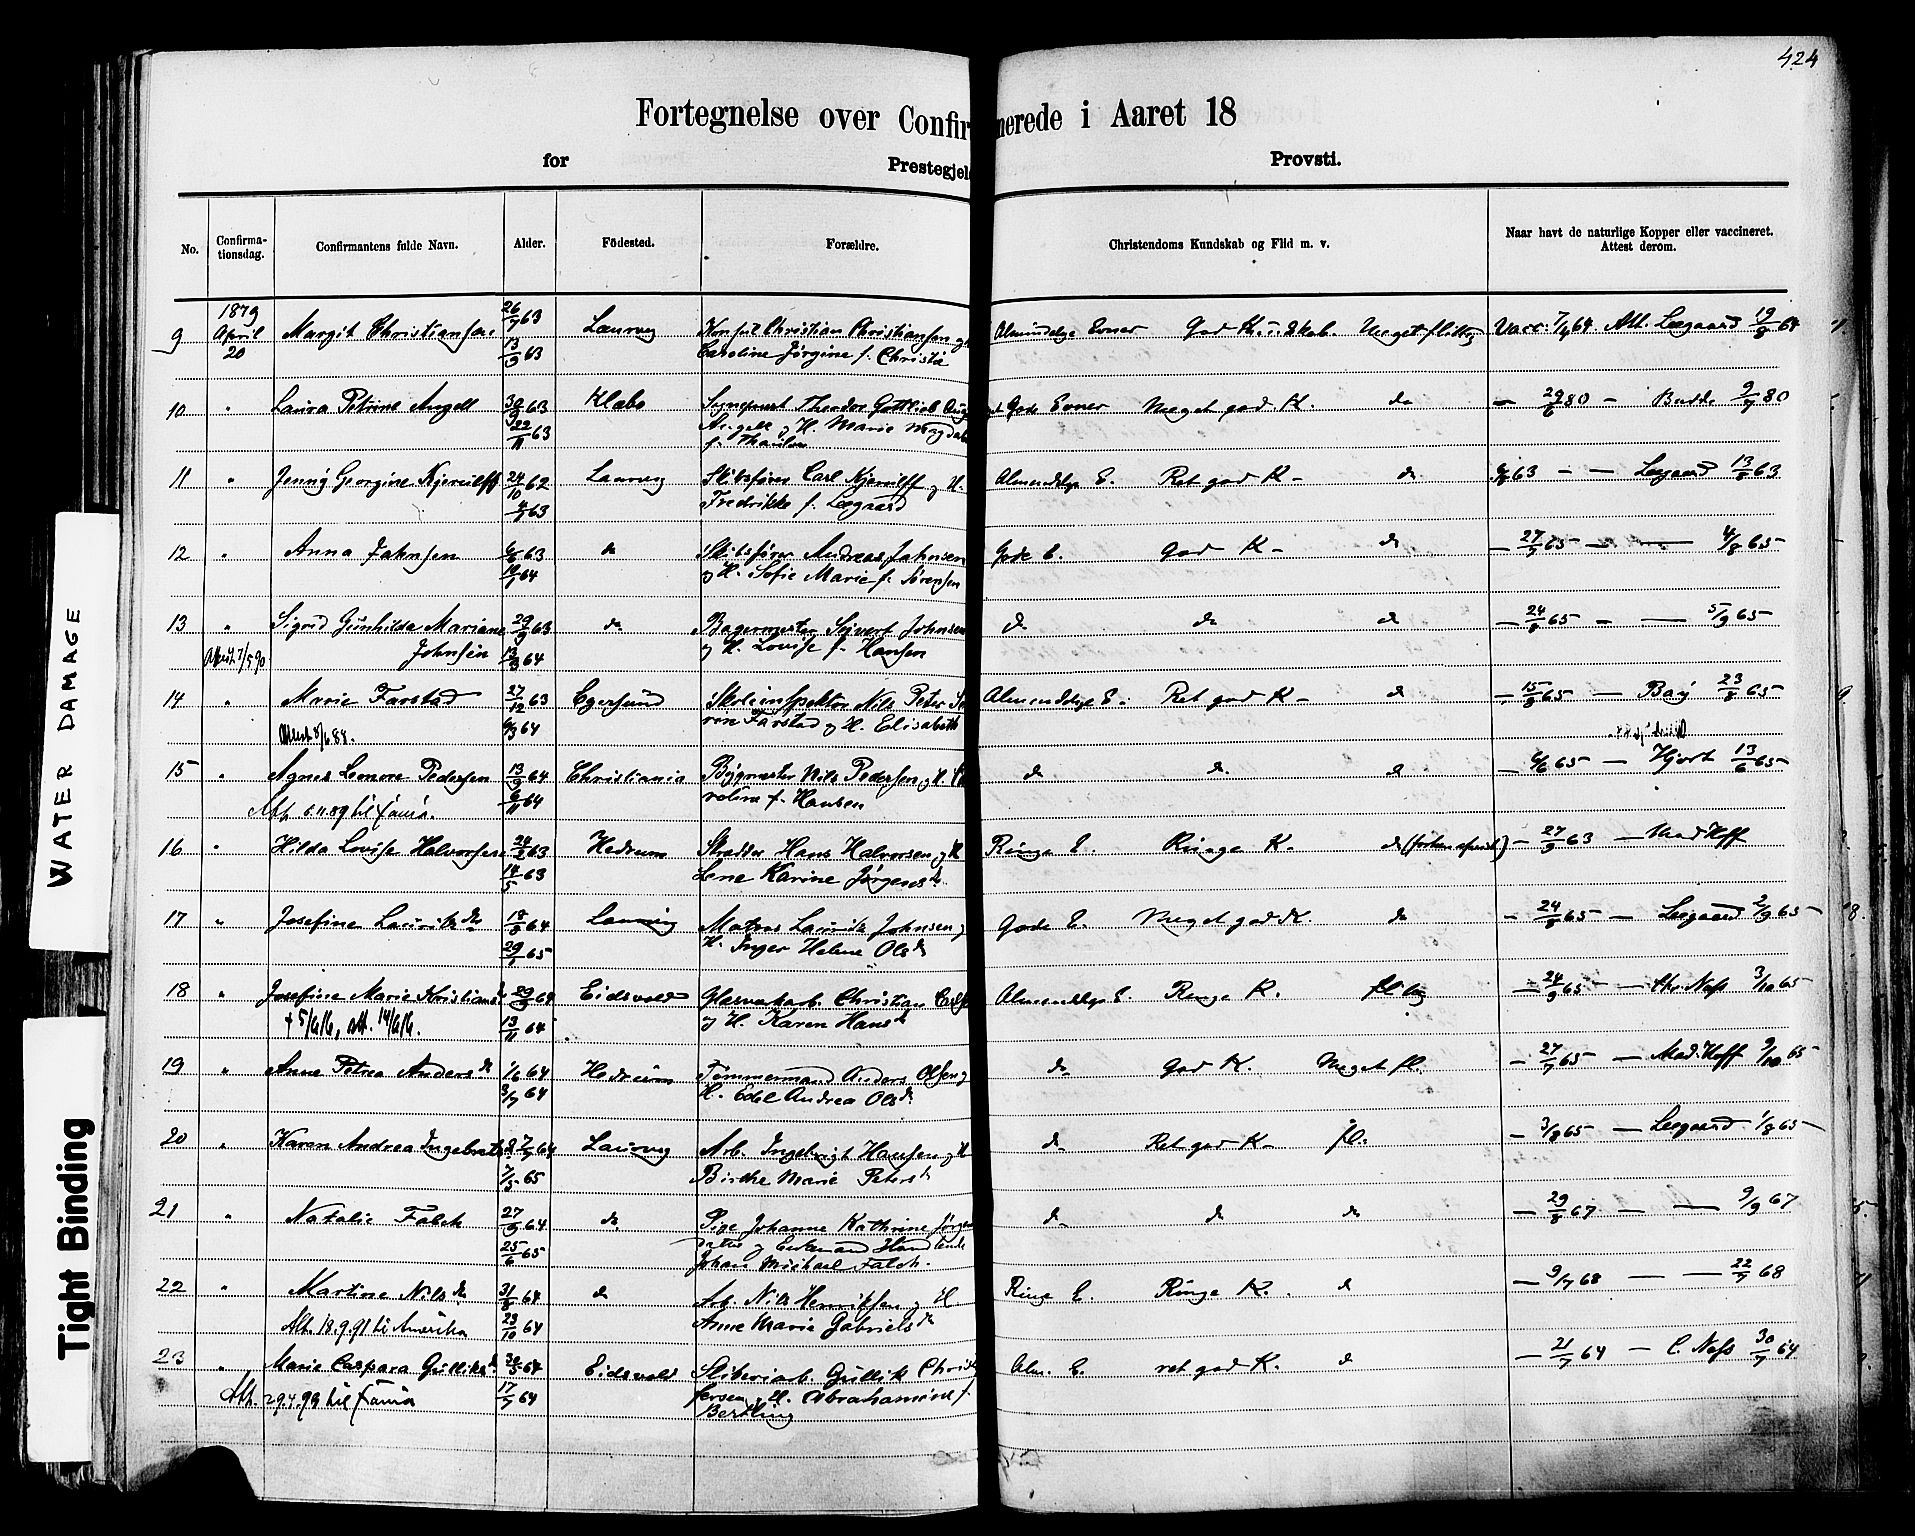 424
Fortegnelse over Confirmerede i Aaret 18
for Prestegjeld Provsti.
No. Confirma-tionsdag. Confirmantens fulde Navn. Alder. Födested. Forældre. Christendoms Kundskab og Flid m. v. Naar havt de naturlige Kopper eller vaccineret. Attest derom.
1879
9 April 20 Margit Christiansen 26/7 63 13/9 63 Laurvig Konsul Christian Christiansen og
Caroline Jørgine f. Christie
Almindelige Evner God K. Meget flittig Vacc. 7/4 64 Att. Løgaard 19/8 64
10 " Laura Petrine Angell 30/9 63 22/11 63 Klæbo Sognepræst Theodor Gottlieb
Angell og H. Marie Magdal
f. Thaulow
Gode Evner Meget god K. do — 29/6 80 — Budde 9/7 80
11 " Jenny Georgine Kjerulff 24/10 62 63 Laurvig Skibsfører Carl Kjerulff og H.
Fredrikke f. Løgaard
Almindelige E. Ret god K. do 63 — — Løgaard 13/8 63
12 " Anna Jahnsen 6/6 63 10/1 64 do Skibsfører Andreas Jahnsen
og H. Sofie Marie f. Sørensen
Gode E. God K. do — 27/7 65 — — 4/8 65
13 " Sigrid Gunhilda Mariane 29/9 63 do Bagermester Sivert Johnsen
Attest 7/5 90 Johnsen 13/3 64 og H. Lovise f. Hansen
do do do — 24/8 65 — — 5/9 65
14 " Marie Farstad 27/12 63 Egersund Skoleinspektør Nils Peter
Attest 8/6 84. 6/3 64 Farstad og H. Elisabeth
Almindelige E. Ret god K. do — 15/8 65 — 23/8 65
15 " Agnes Lenore Pedersen 13/9 64 Christiania Bygmester Nils Pedersen og H.
Att. 6.11.89 til 6/11 64 f. Hansen
do do do — 6/6 65 — Hjort 13/6 65
16 " Hilda Lovise Halvorsen 63 14/5 63 Hedrum Skrædder Hans Halvorsen og H
Lene Karine Jørgensdr
Ringe E. Ringe K. do — 27/9 63 — Mad. Hoff
17 " Josefine Lauritzdr 18/8 64 29/1 65 Laurvig Matros Lauritz Johnsen og
H. Inger Helene Olsdr
Gode E. Meget god K. do — 24/8 65 — Løgaard 2/9 65
18 " Josefine Marie Kristiansdr 64 Eidsvold Glasværkarb. Christian Carls
+ 5/6 16, att. 14/6 16. 13/11 64 og H. Karen Hansdr
Almindelige E. Ringe K. flittig — 24/9 65 — Chr. Næss 3/10 65
19 " Anne Petrea Andersdr 1/6 64 Hedrum Tømmermand Anders Olsen og
3/7 64 H. Edel Andrea Olsdr
do God K. Meget fl. — 27/7 65 — Mad. Hoff 9/10 65
20 " Karen Andrea Ingebretsdr 64 Laurvig Arb. Ingebrigt Hansen og H
7/5 65 Birthe Marie Petersdr
do Ret god K. fl. — 3/8 65 — Løgaard 1/8 65
21 " Natalie Falch 27/9 64 do Pige Johanne Kathrine Jørgens
25/6 65 datter og
Johan Michael Falch.
do do do — 29/8 67 — — 9/9 67
22 " Martine Nilsdr 31/8 64 do Arb. Nils Henriksen og H
Att. 18.9.91 til Amerika 23/10 64 Anne Marie Gabrielsdr
Ringe E. Ringe K. do — 9/7 68 — — 22/7 68
23 " Marie Caspara Gulliksdr 64 Eidsvold Sliberiarb. Gullik Christ
Att. 29.4.99 til 17/7 64 fersen og H. Abrahamine f.
Bertling
Alm. E. ret god K. do — 21/7 64 — C. Næss 30/7 64
WATER DAMAGE
Tight Binding